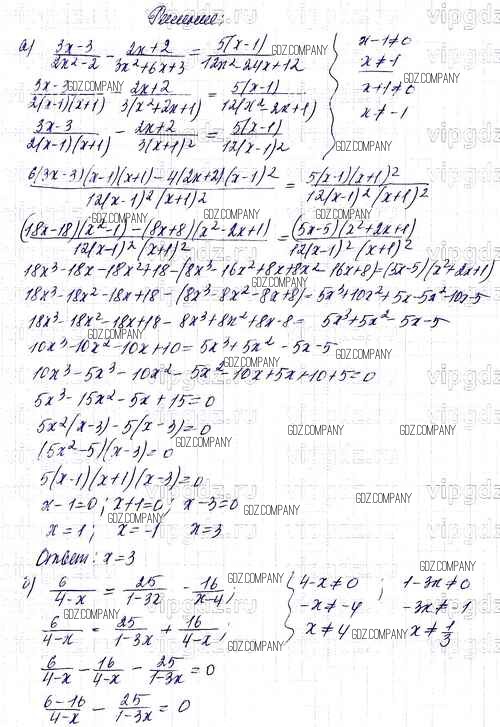 Решение:
а) (3x-3)/(2x²-2) - (2x+2)/(3x²+6x+3) = 5(x-1)/(12x²-24x+12) x-1≠0
x≠1
(3x-3)/(2(x-1)(x+1)) - (2x+2)/(3(x²+2x+1)) = 5(x-1)/(12(x²-2x+1)) x+1≠0
x≠-1
(3x-3)/(2(x-1)(x+1)) - (2x+2)/(3(x+1)²) = 5(x-1)/(12(x-1)²)
(6(3x-3)(x-1)(x+1)-4(2x+2)(x-1)²)/(12(x-1)²(x+1)²) = 5(x-1)(x+1)²/(12(x-1)²(x+1)²)
((18x-18)(x²-1)-(8x+8)(x²-2x+1))/(12(x-1)²(x+1)²) = (5x-5)(x²+2x+1)/(12(x-1)²(x+1)²)
18x³-18x-18x²+18-(8x³-16x²+8x+8x²-16x+8)=(5x-5)(x²+2x+1)
18x³-18x²-18x+18-(8x³-8x²-8x+8)=5x³+10x²+5x-5x²-10x-5
18x³-18x²-18x+18-8x³+8x²+8x-8= 5x³+5x²-5x-5
10x³-10x²-10x+10=5x³+5x²-5x-5
10x³-5x³-10x²-5x²-10x+5x+10+5=0
5x³-15x²-5x+15=0
5x²(x-3)-5(x-3)=0
(5x²-5)(x-3)=0
5(x-1)(x+1)(x-3)=0
x-1=0; x+1=0; x-3=0
x=1; x=-1 x=3
Ответ: x=3
б) 6/(4-x) = 25/(1-3x) - 16/(x-4); 4-x≠0 ; 1-3x≠0
-x≠-4 -3x≠-1
6/(4-x) = 25/(1-3x) + 16/(4-x); x≠4 x≠1/3
6/(4-x) - 16/(4-x) - 25/(1-3x) = 0
(6-16)/(4-x) - 25/(1-3x) = 0
GDZ.COMPANY
vipgdz.ru